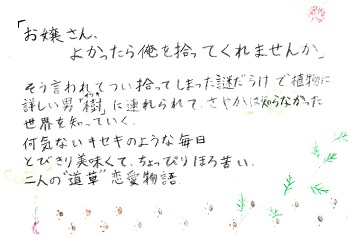 「お嬢さん、
よかったら俺を拾ってくれませんか」
そう言われてつい拾ってしまった謎だらけで植物に
詳しい男「樹」に連れられて、さやかは知らなかった
いつき
世界を知っていく。
何気ないキセキのような毎日
とびきり美味くて、ちょっぴりほろ苦い、
二人の“道草”恋愛物語